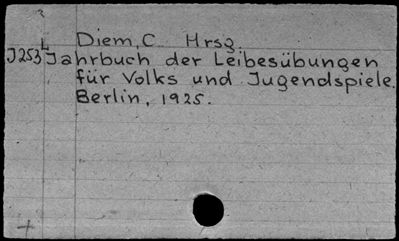 ?
L Diem, C. Hrsg.
J253 Jahrbuch der Leibesübungen
für Volks und Jugendspiele.
Berlin, 1925.
+